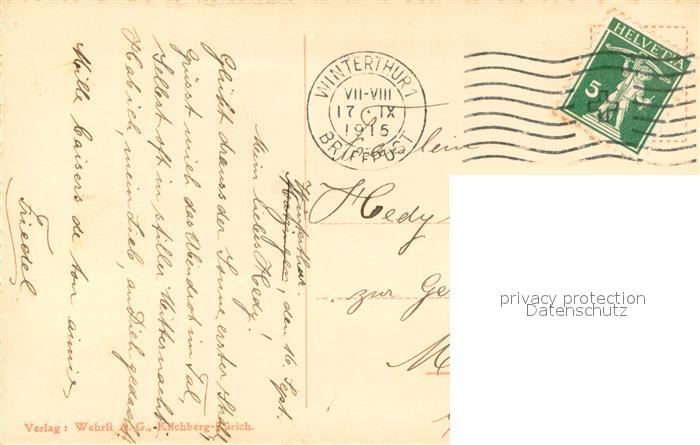 Winterthur, den 16. Sept.
Mein liebes Hedy!
Glüht drauss der Sonne erster Strahl,
Grüsst mich das Abendrot im Tal,
Selbst oft in stiller Mitternacht.
Hab ich, mein Lieb, an Dich gedacht,
Mille baisers de ton aimé
Friedel
WINTERTHUR 1
VII-VIII
17 · IX
1915
BRIEFPOST
HELVETIA
5
Fräulein
Hedy
zur Ge
M
privacy protection
Datenschutz
Verlag: Wehrli A. G., Kilchberg-Zürich.